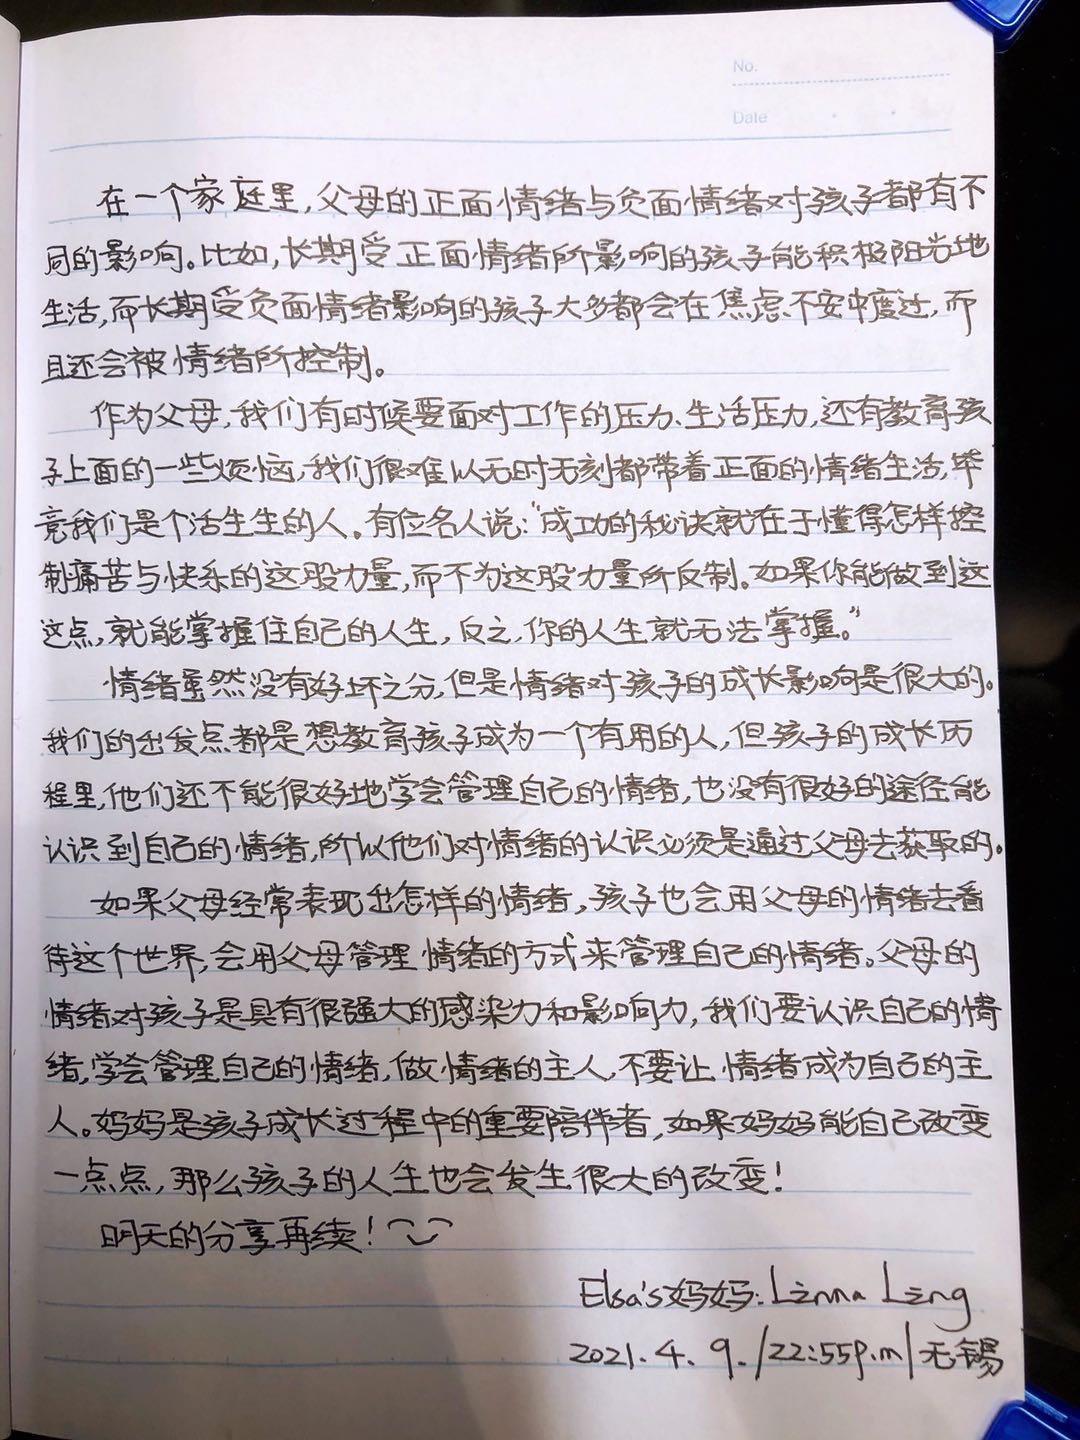 No.
Date
在一个家庭里,父母的正面情绪与负面情绪对孩子都有不
同的影响。比如,长期受正面情绪所影响的孩子能积极阳光地
生活,而长期受负面情绪影响的孩子大多都会在焦虑不安中度过,而
且还会被情绪所控制。
作为父母,我们有时候要面对工作的压力、生活压力,还有教育孩
子上面的一些烦恼,我们很难以无时无刻都带着正面的情绪生活,毕
竟我们是个活生生的人。有位名人说:“成功的秘诀就在于懂得怎样控
制痛苦与快乐的这股力量,而不为这股力量所反制。如果你能做到这
这点,就能掌握住自己的人生,反之,你的人生就无法掌握。”
情绪虽然没有好坏之分,但是情绪对孩子的成长影响是很大的。
我们的出发点都是想教育孩子成为一个有用的人,但孩子的成长历
程里,他们还不能很好地学会管理自己的情绪,也没有很好的途径能
认识到自己的情绪,所以他们对情绪的认识必须是通过父母去获取的。
如果父母经常表现出怎样的情绪,孩子也会用父母的情绪去看
待这个世界,会用父母管理情绪的方式来管理自己的情绪。父母的
情绪对孩子是具有很强大的感染力和影响力,我们要认识自己的情
绪,学会管理自己的情绪,做情绪的主人,不要让情绪成为自己的主
人。妈妈是孩子成长过程中的重要陪伴者,如果妈妈能自己改变
一点点,那么孩子的人生也会发生很大的改变!
明天的分享再续!
Elsa's妈妈:Linna Ling
2021.4.9./22:55p.m/无锡